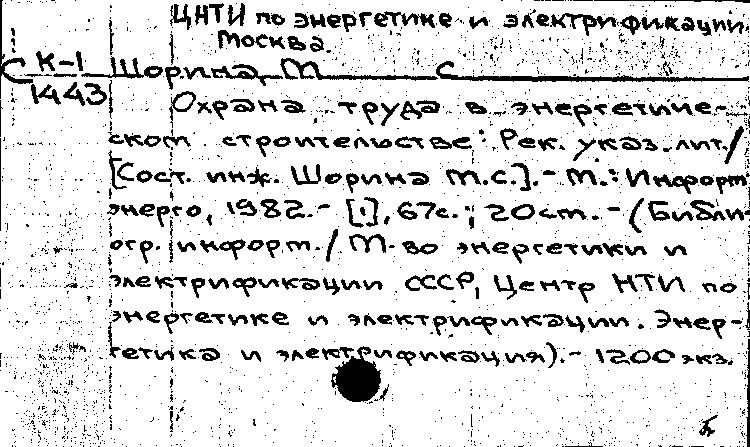 ЦНТИ по энергетике и электрификации.
Москва.
К-1 Шорина, М С
1443 Охрана труда в энергетиче-
ском строительстве: Рек. указ. лит./
[Сост. инж. Шорина М.С.]. - М.: Информ
энерго, 1982. - [1], 67с.; 20см. - (Библи-
огр. информ./ М-во энергетики и
электрификации СССР, Центр НТИ по
энергетике и электрификации. Энер-
гетика и электрификация). - 1200 экз.